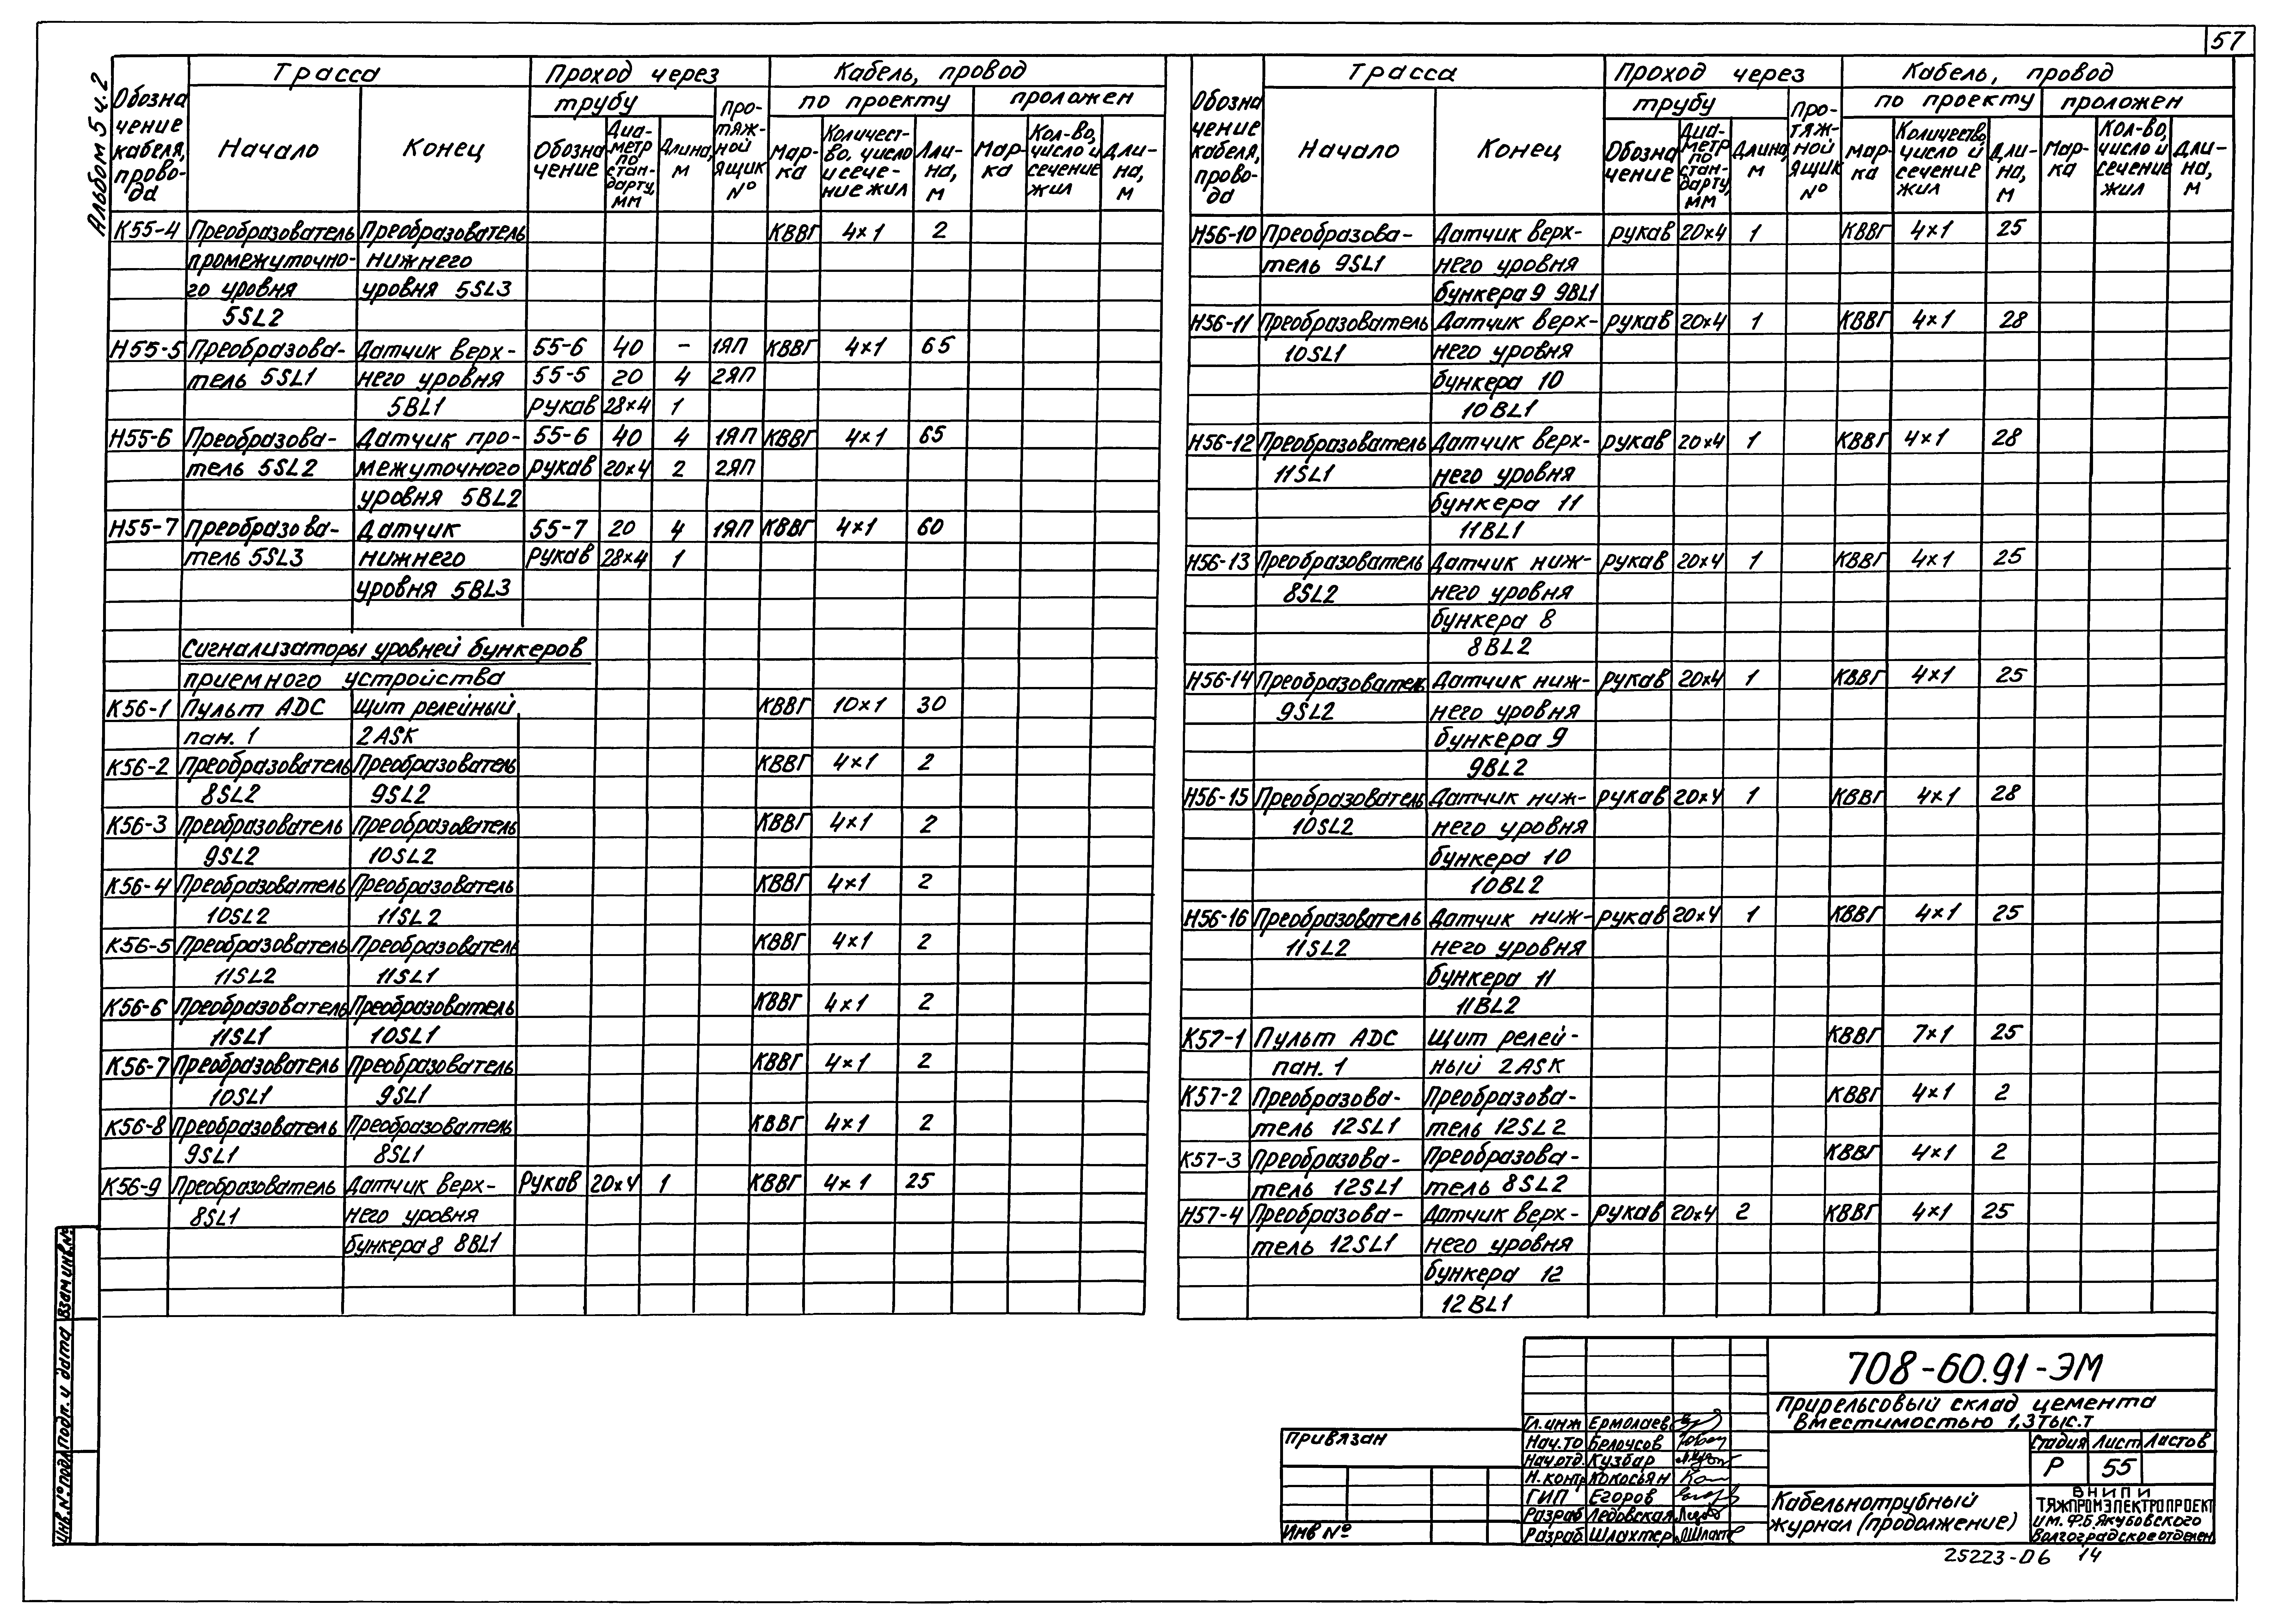 57
Альбом 5 ч.2
Обозначение кабеля, провода
Трасса
Проход через
Кабель, провод
трубу
Протяжной ящик №
по проекту
проложен
Начало
Конец
Обозначение
Диаметр по стандарту, мм
Длина, м
Марка
Количество, число и сечение жил
Длина, м
Марка
Кол-во, число и сечение жил
Длина, м
К55-4 Преобразователь Преобразователь КВВГ 4×1 2
промежуточно- нижнего
го уровня уровня 5SL3
5SL2
Н55-5 Преобразова- Датчик верх- 55-6 40 – 1ЯП КВВГ 4×1 65
тель 5SL1 него уровня 55-5 20 4 2ЯП
5BL1 рукав 28×4 1
Н55-6 Преобразова- Датчик про- 55-6 40 4 1ЯП КВВГ 4×1 65
тель 5SL2 межуточного рукав 20×4 2 2ЯП
уровня 5BL2
Н55-7 Преобразова- Датчик 55-7 20 4 1ЯП КВВГ 4×1 60
тель 5SL3 нижнего рукав 28×4 1
уровня 5BL3
Сигнализаторы уровней бункеров
приемного устройства
К56-1 Пульт ADC Щит релейный КВВГ 10×1 30
пан. 1 2ASK
К56-2 Преобразователь Преобразователь КВВГ 4×1 2
8SL2 9SL2
К56-3 Преобразователь Преобразователь КВВГ 4×1 2
9SL2 10SL2
К56-4 Преобразователь Преобразователь КВВГ 4×1 2
10SL2 11SL2
К56-5 Преобразователь Преобразователь КВВГ 4×1 2
11SL2 11SL1
К56-6 Преобразователь Преобразователь КВВГ 4×1 2
11SL1 10SL1
К56-7 Преобразователь Преобразователь КВВГ 4×1 2
10SL1 9SL1
К56-8 Преобразователь Преобразователь КВВГ 4×1 2
9SL1 8SL1
К56-9 Преобразователь Датчик верх- Рукав 20×4 1 КВВГ 4×1 25
8SL1 него уровня
бункера 8 8BL1
Обозначение кабеля, провода
Трасса
Проход через
Кабель, провод
трубу
Протяжной ящик №
по проекту
проложен
Начало
Конец
Обозначение
Диаметр по стандарту, мм
Длина, м
Марка
Количество число и сечение жил
Длина, м
Марка
Кол-во, число и сечение жил
Длина, м
Н56-10 Преобразова- Датчик верх- рукав 20×4 1 КВВГ 4×1 25
тель 9SL1 него уровня
бункера 9 9BL1
Н56-11 Преобразователь Датчик верх- рукав 20×4 1 КВВГ 4×1 28
10SL1 него уровня
бункера 10
10BL1
Н56-12 Преобразователь Датчик верх- рукав 20×4 1 КВВГ 4×1 28
11SL1 него уровня
бункера 11
11BL1
Н56-13 Преобразователь Датчик ниж- рукав 20×4 1 КВВГ 4×1 25
8SL2 него уровня
бункера 8
8BL2
Н56-14 Преобразователь Датчик ниж- рукав 20×4 1 КВВГ 4×1 25
9SL2 него уровня
бункера 9
9BL2
Н56-15 Преобразователь Датчик ниж- рукав 20×4 1 КВВГ 4×1 28
10SL2 него уровня
бункера 10
10BL2
Н56-16 Преобразователь Датчик ниж- рукав 20×4 1 КВВГ 4×1 25
11SL2 него уровня
бункера 11
11BL2
К57-1 Пульт ADC Щит релей- КВВГ 7×1 25
пан. 1 ный 2ASK
К57-2 Преобразова- Преобразова- КВВГ 4×1 2
тель 12SL1 тель 12SL2
К57-3 Преобразова- Преобразова- КВВГ 4×1 2
тель 12SL1 тель 8SL2
Н57-4 Преобразова- Датчик верх- рукав 20×4 2 КВВГ 4×1 25
тель 12SL1 него уровня
бункера 12
12BL1
Взам инв.№
Подп. и дата
Инв.№ подл
Привязан
Инв №
Гл.инж Ермолаев
Нач.ТО Белоусов
Нач.отд. Кузбар
Н.контр Кокосьян
ГИП Егоров
Разраб Ледовская
Разраб. Шляхтер
708-60.91-ЭМ
Прирельсовый склад цемента
вместимостью 1,3 тыс.т
Стадия Лист Листов
Р 55
Кабельнотрубный
журнал (продолжение)
ВНИПИ
ТЯЖПРОМЭЛЕКТРОПРОЕКТ
им. Ф.Б.Якубовского
Волгоградское отделен.
25223-06 14